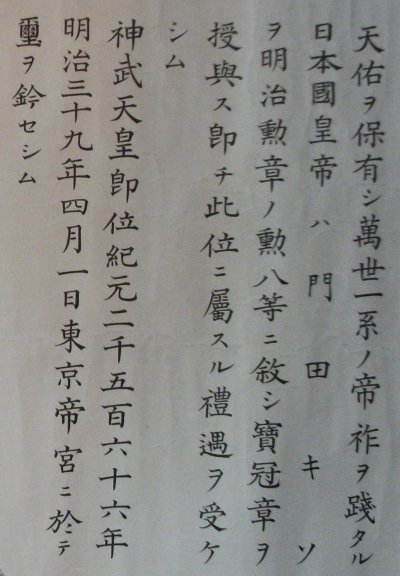 天佑ヲ保有シ萬世一系ノ帝祚ヲ踐タル
日本國皇帝ハ門田キソ
ヲ明治勲章ノ勲八等ニ敘シ寶冠章ヲ
授與ス卽チ此位ニ屬スル禮遇ヲ受ケ
シム
神武天皇卽位紀元二千五百六十六年
明治三十九年四月一日東京帝宮ニ於テ
璽ヲ鈐セシム